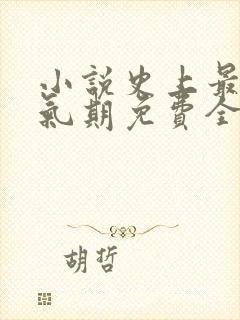 小說史上最
氣期免費全
胡哲